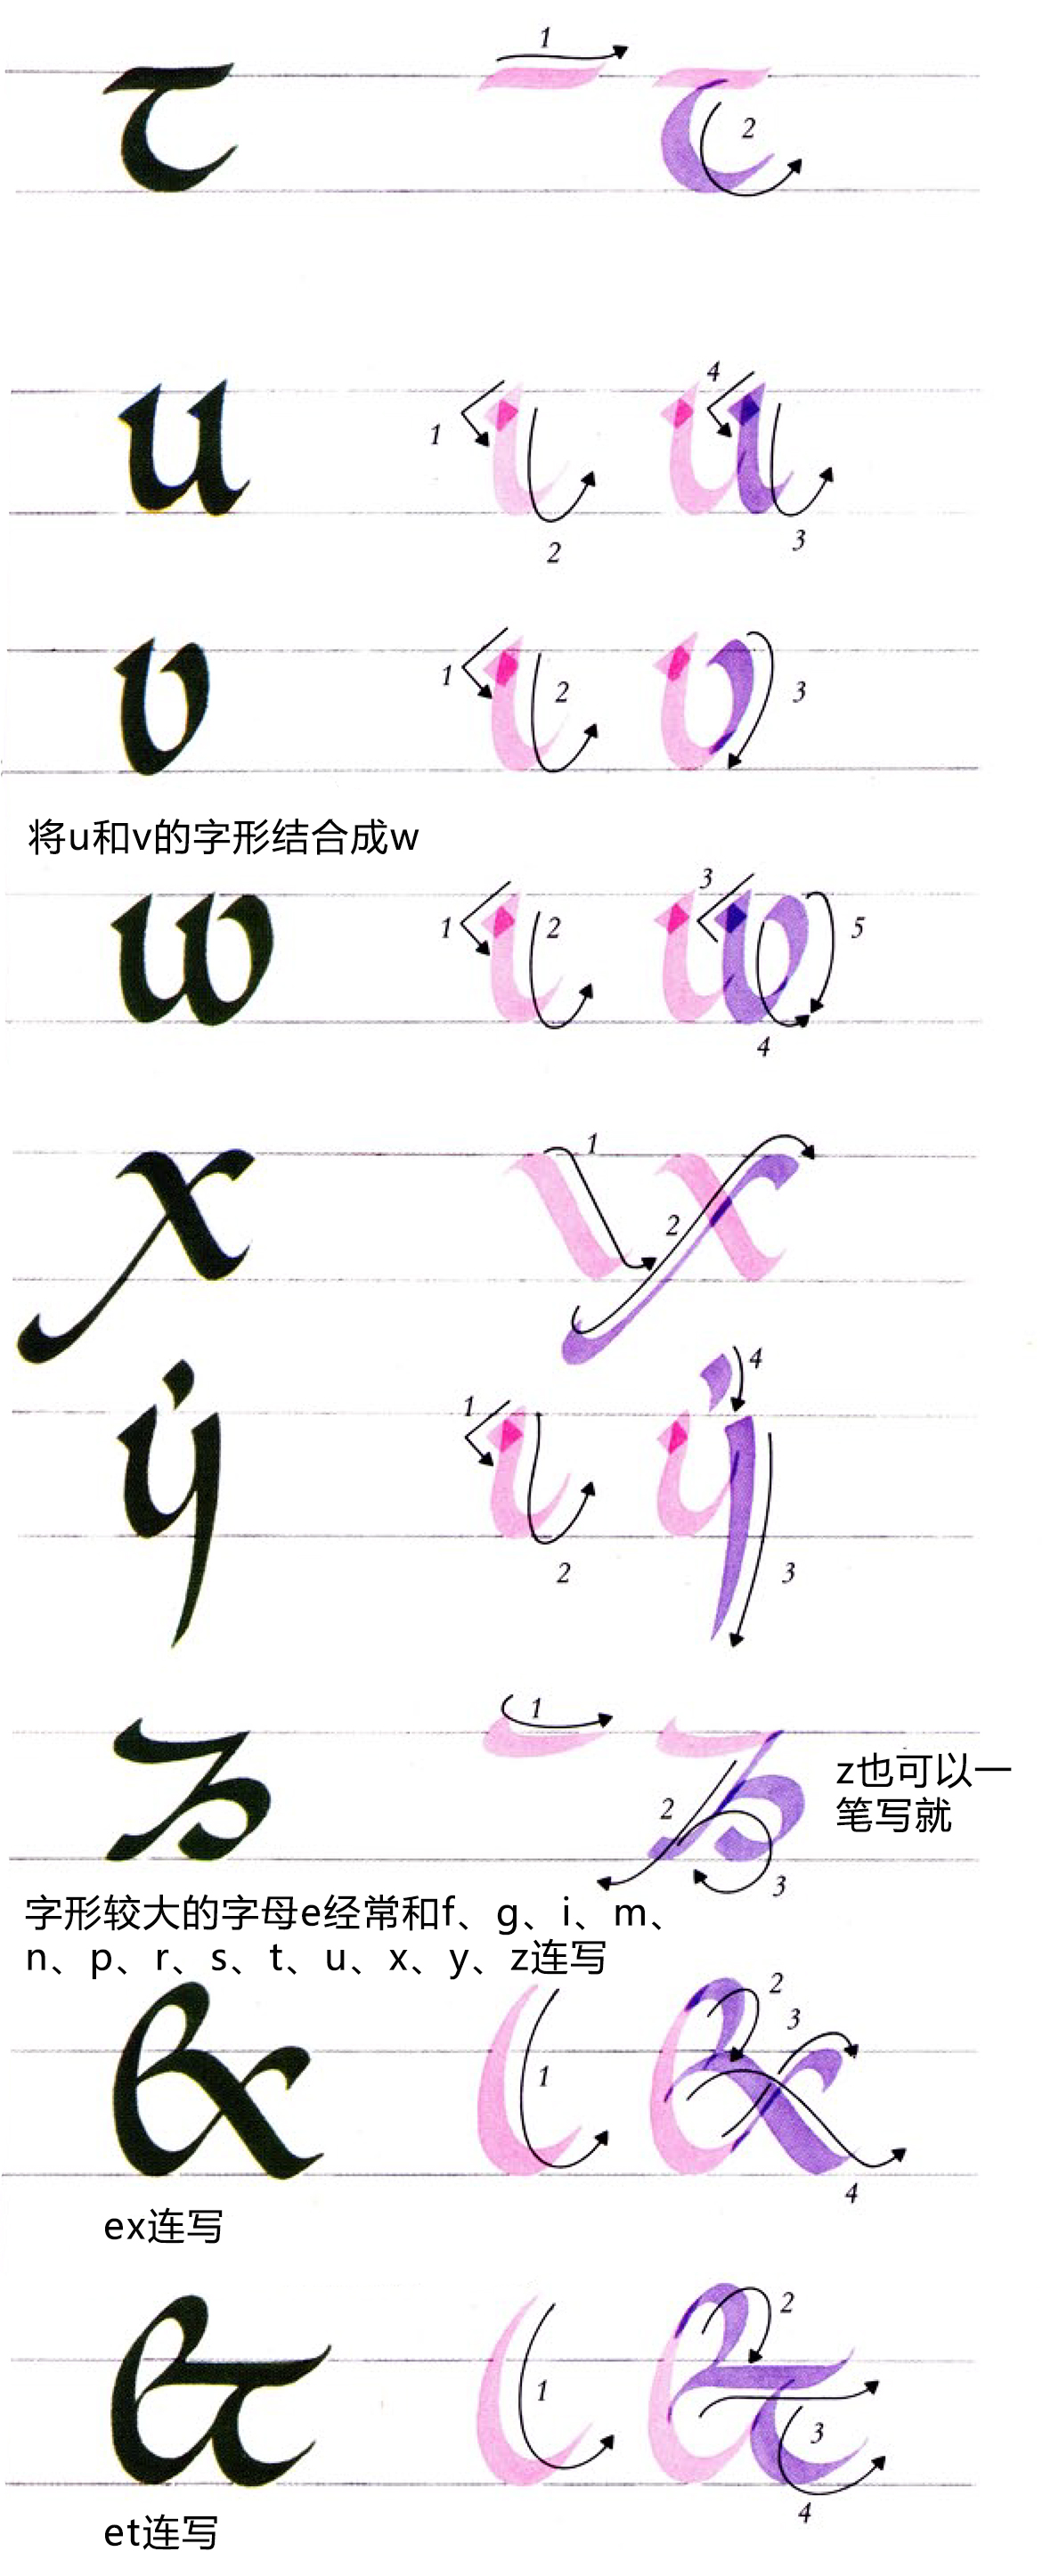 t
1
2
u
1
2
4
3
v
1
2
3
将u和v的字形结合成w
w
1
2
3
4
5
x
1
2
y
1
2
4
3
z
1
2
3
z也可以一
笔写就
字形较大的字母e经常和f、g、i、m、
n、p、r、s、t、u、x、y、z连写
ex
1
2
3
4
ex连写
et
1
2
3
4
et连写